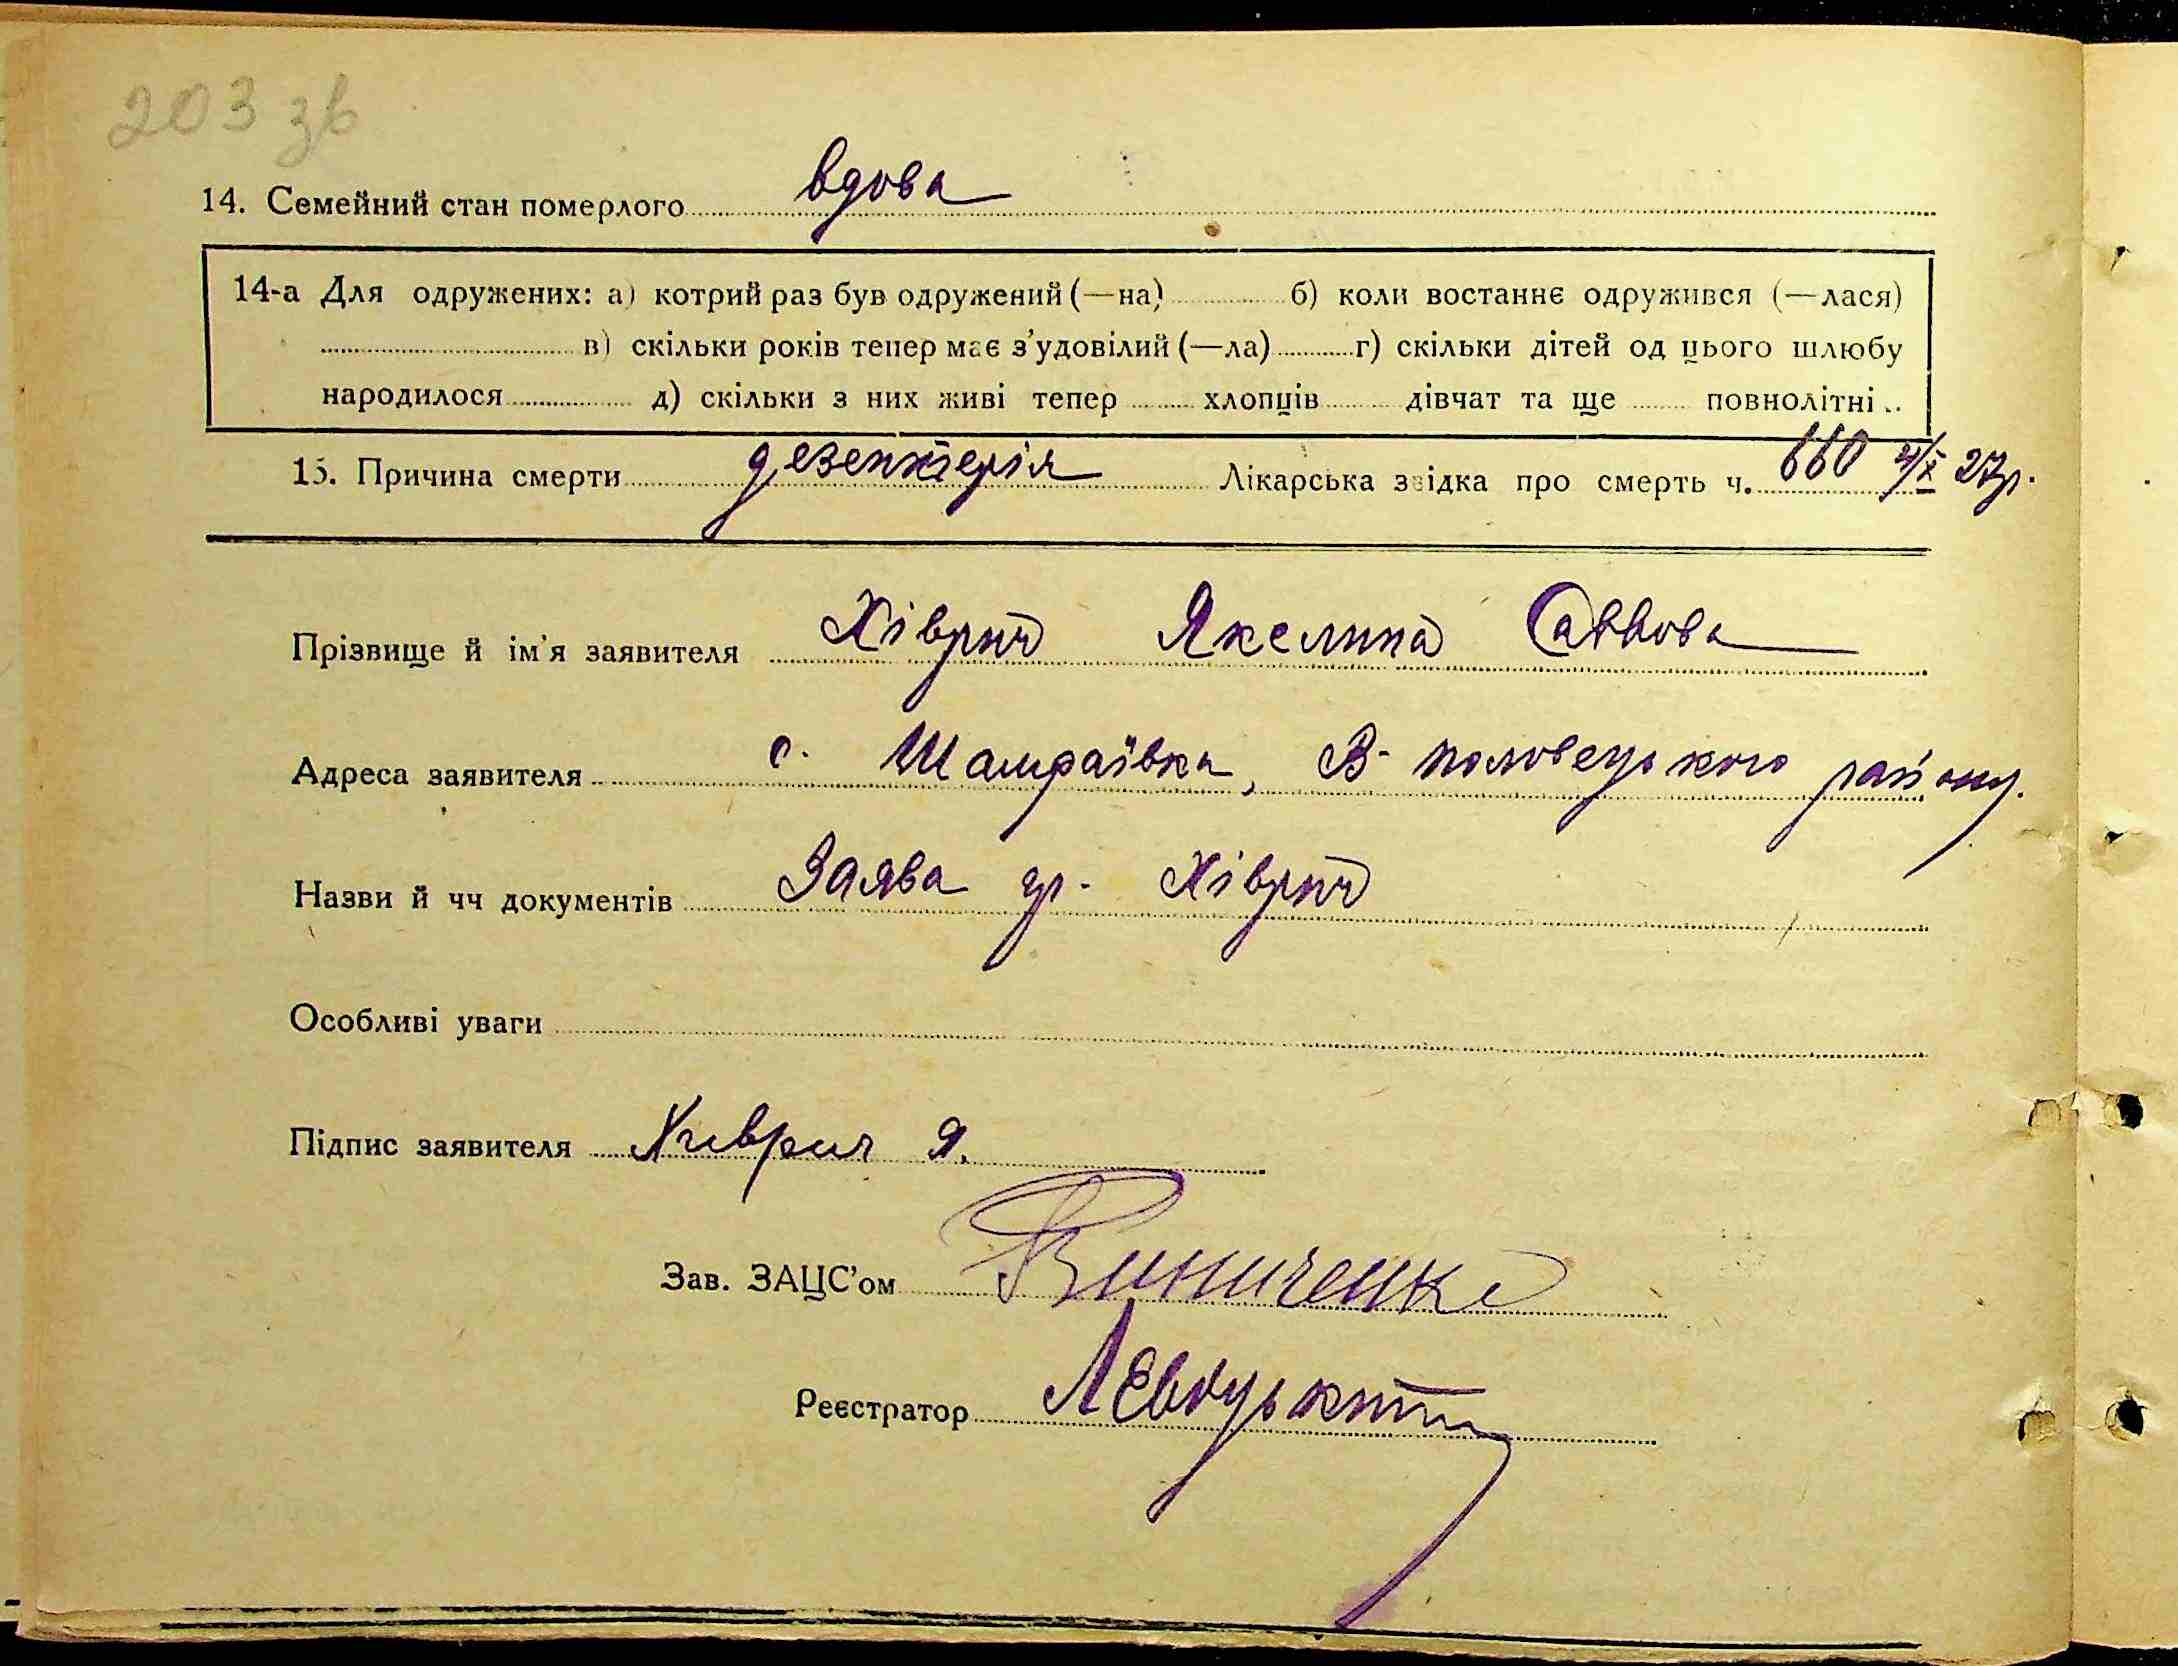 203 зв
14. Семейний стан померлого вдова
14-а Для одружених: а) котрий раз був одружений (—на) б) коли востаннє одружився (—лася)
в) скільки років тепер має з’удовілий (—ла) г) скільки дітей од цього шлюбу
народилося д) скільки з них живі тепер хлопців дівчат та ще повнолітні
15. Причина смерти дезентерія Лікарська звідка про смерть ч. 660 4/X 27р.
Прізвище й ім’я заявителя Хіврич Якелина Саввова
Адреса заявителя с. Шамраївка, В-половецького району.
Назви й чч документів Заява гр. Хіврич
Особливі уваги
Підпис заявителя Хиврич Я.
Зав. ЗАЦС’ом Виниченко
Реєстратор